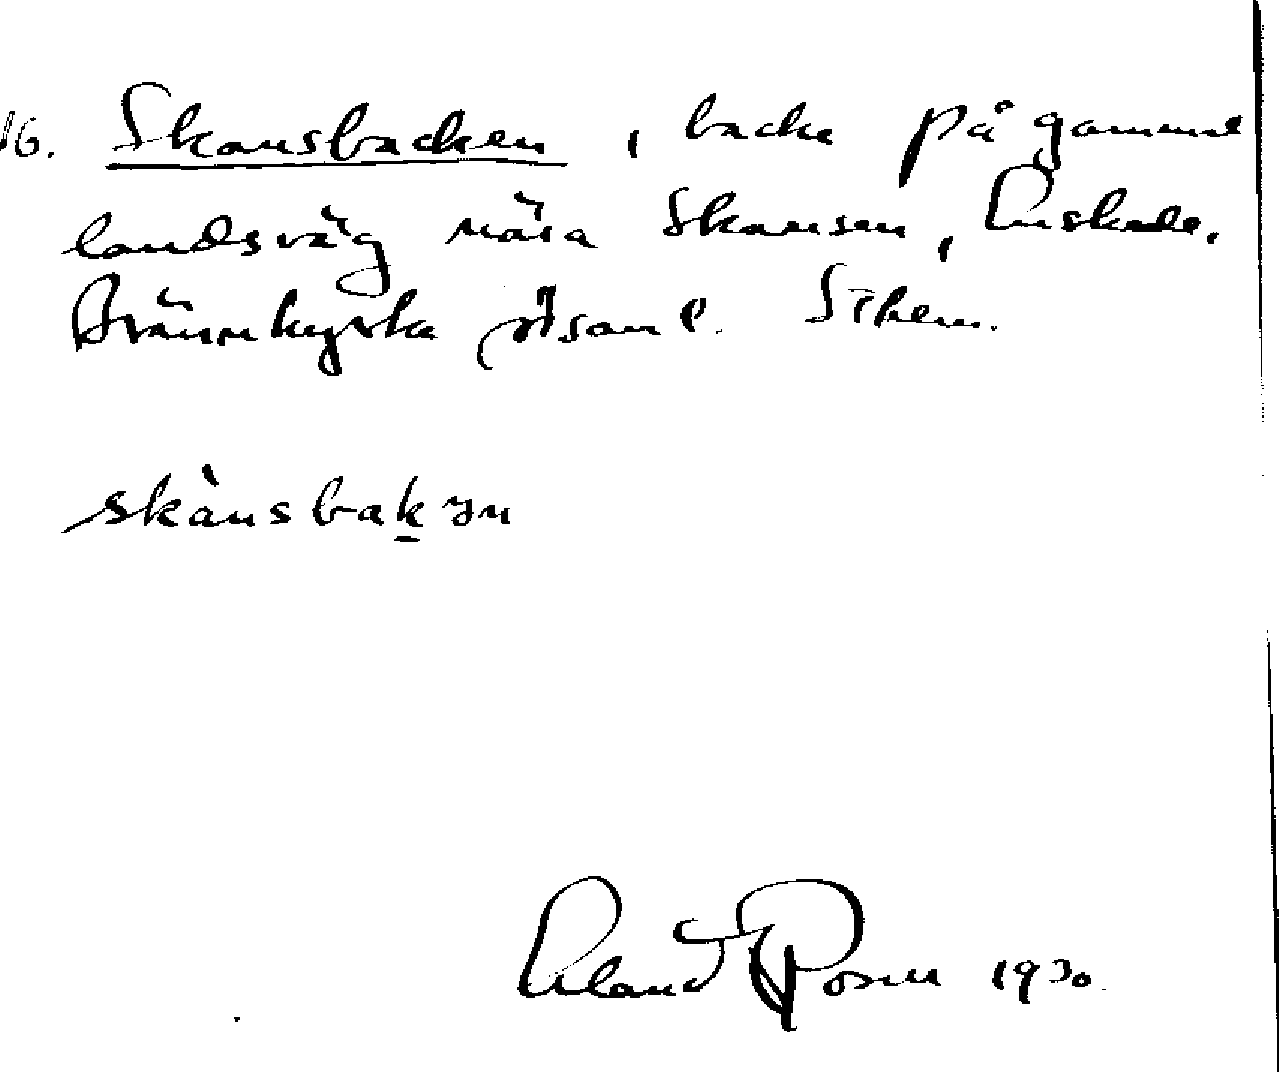 16. Skansbacken, backe på gammal
landsväg nära Skansen, Enskede,
Brännkyrka sn. Sthm.
skànsbakən
Erland Rosell 1930